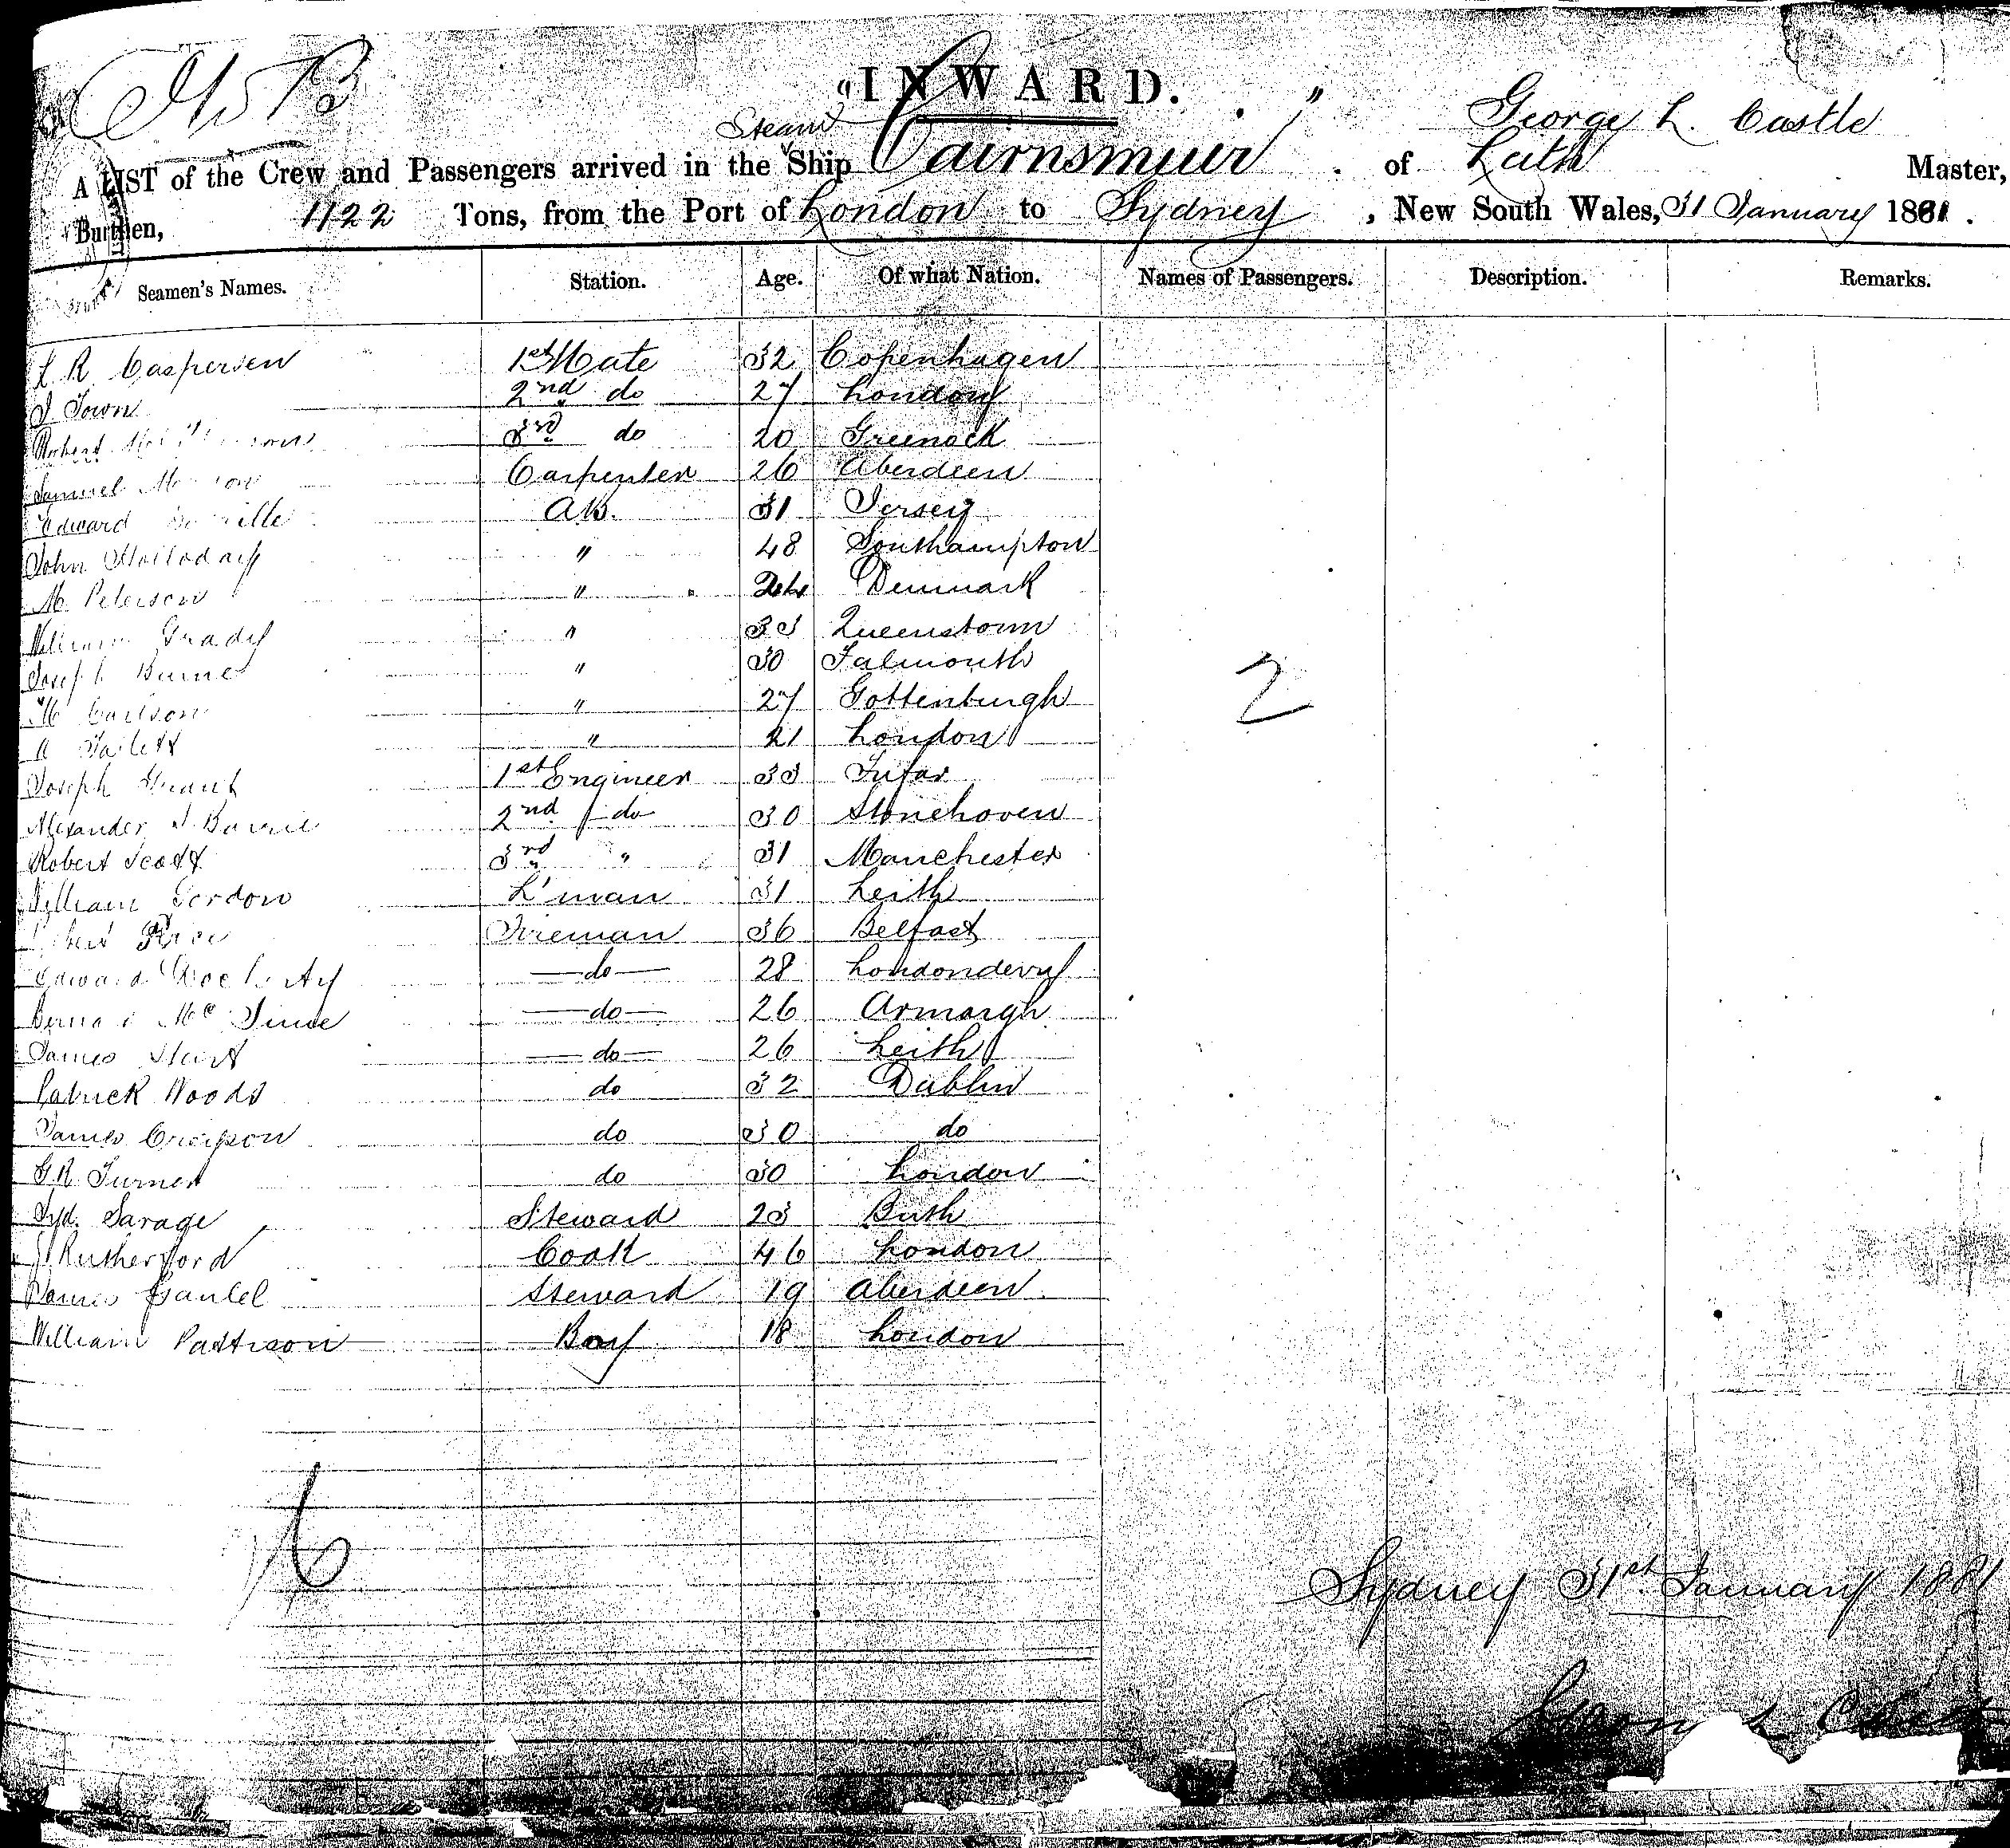 "INWARD."
George L. Castle
Steam
A LIST of the Crew and Passengers arrived in the Ship Cairnsmuir of Leith Master,
Burthen, 1122 Tons, from the Port of London to Sydney, New South Wales, 31 January 1881.
Seamen's Names. Station. Age. Of what Nation. Names of Passengers. Description. Remarks.
R Caspersen 1st Mate 32 Copenhagen
J Town 2nd do 27 London
Robert 3rd do 20 Greenock
Samuel Carpenter 26 Aberdeen
Edward AB. 31 Jersey
John Holladay " 48 Southampton
M. Peterson " 24 Denmark
William Grady " 33 Queenstown
Joseph " 30 Falmouth
M Carlson " 27 Gottenburgh
" 21 London
Joseph Grant 1st Engineer 33
Alexander J Barrie 2nd do 30 Stonehoven
Robert Scott 3rd " 31 Manchester
William Gordon L'man 31 Leith
Fireman 36 Belfast
Edward do 28 Londondery
Mc do 26 Armargh
James do 26 Leith
Patrick Woods do 32 Dublin
James do 30 do
G R Turner do 30 London
Syd. Savage Steward 23
Rutherford Cook 46 London
James Steward 19 Aberdeen
William Pattison Boy 18 London
2
6
Sydney 31st January 1881